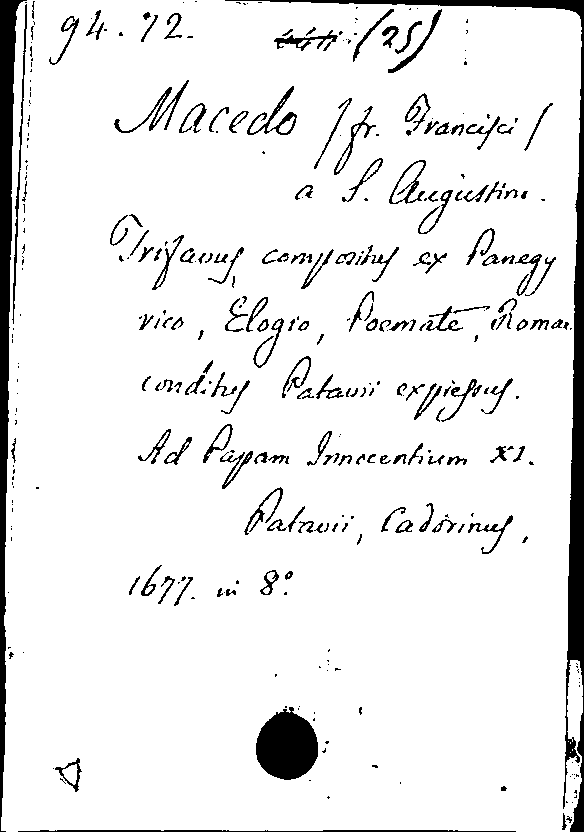 94.72. (25)
Macedo /fr. Francisci/
a S. Augustino.
Trifanus, compositus ex Panegy
rico, Elogio, Poemate, Romae
conditus Patavii expressus.
Ad Papam Innocentium XI.
Patavii, Cadorinus,
1677. in 8°.